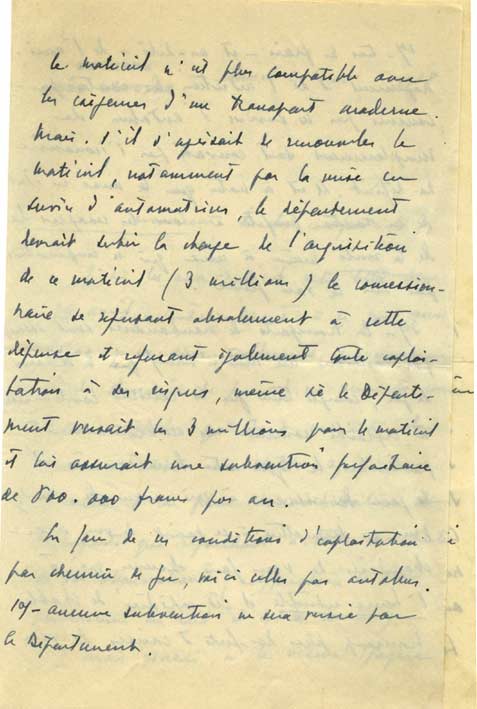 Le matériel n'est plus compatible avec
les exigences d'un transport moderne.
Mais, s'il s'agissait de renouveler le
matériel, notamment par la mise en
service d'automotrices, le département
devrait subir la charge de l'acquisition
de ce matériel (3 millions) le concession-
naire se refusant absolument à cette
dépense et refusant également toute exploi-
tation à ses risques, même si le Départe-
ment versait les 3 millions pour le matériel
et lui assurait une subvention forfaitaire
de 800.000 francs par an.
En face de ces conditions d'exploitation
par chemin de fer, voici celles par autobus.
1°/- aucune subvention ne sera versée par
le Département.